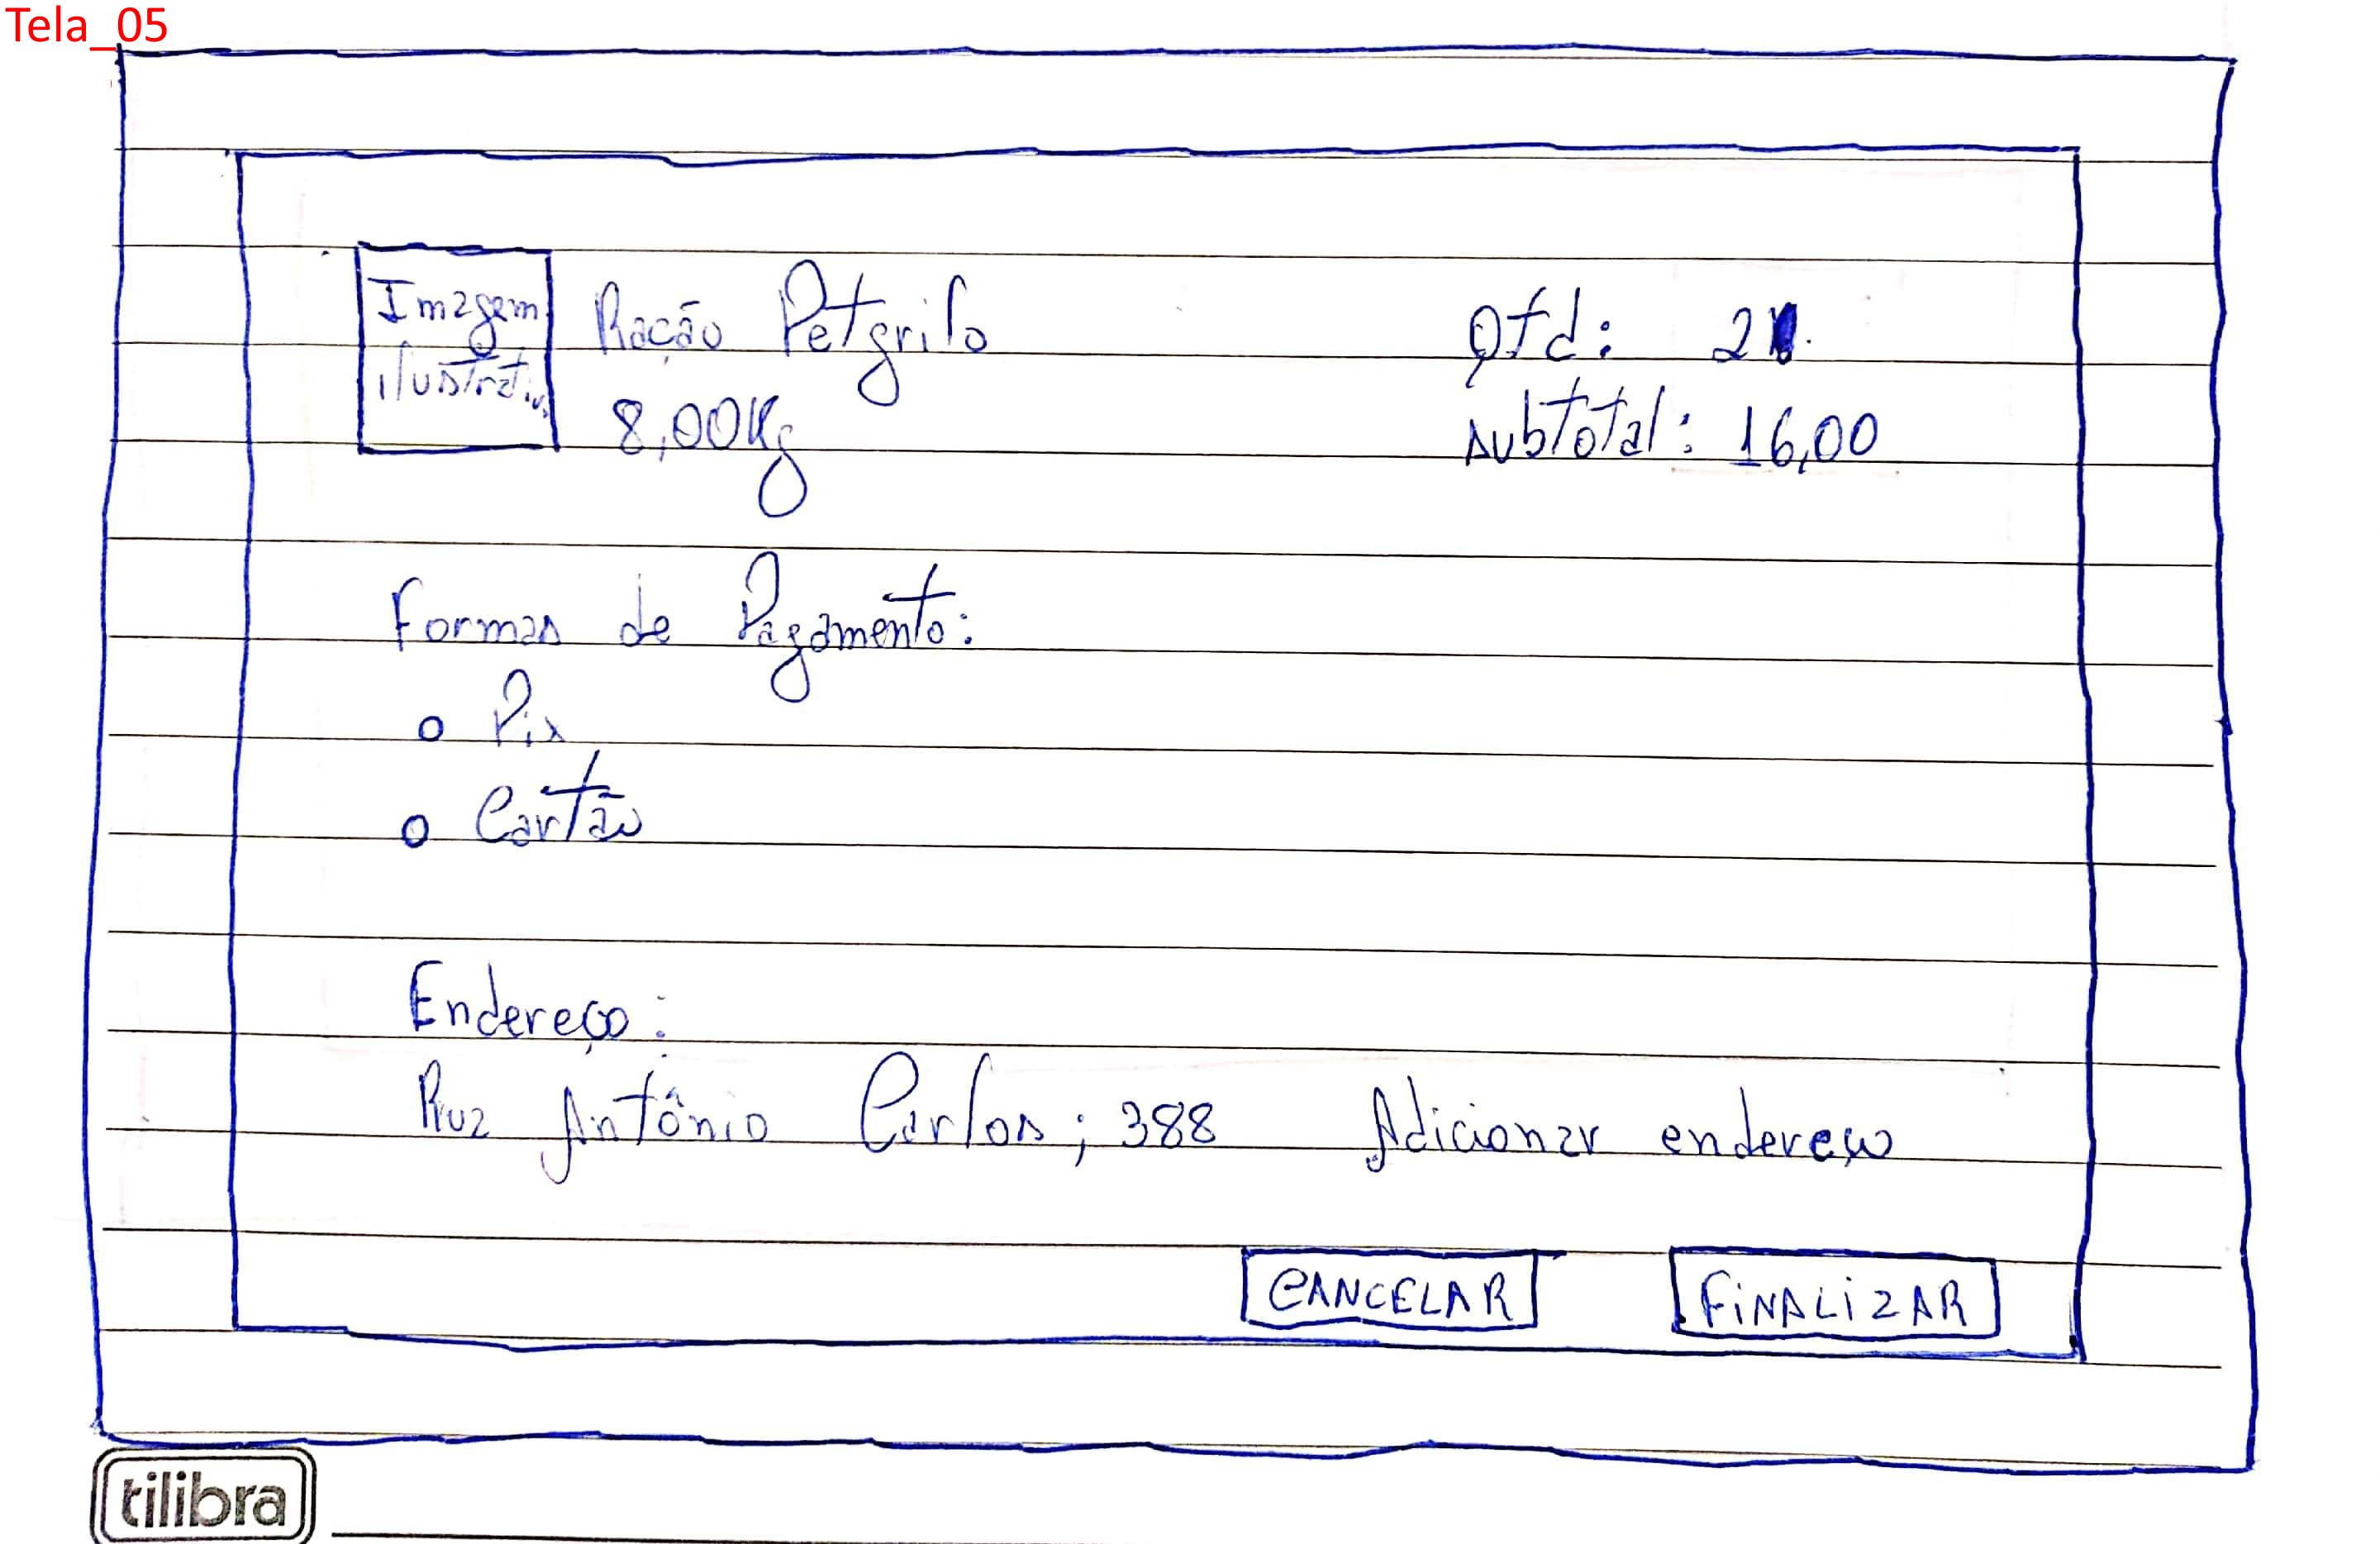 Tela_05
Imagem
ilustrativa
Ração Petgrilo
8,00Kg
Qtd: 2
subtotal: 16,00
Formas de Pagamento:
o Pix
o Cartão
Endereço:
Rua Antônio Carlos; 388 Adicionar endereço
CANCELAR
FiNALiZAR
tilibra